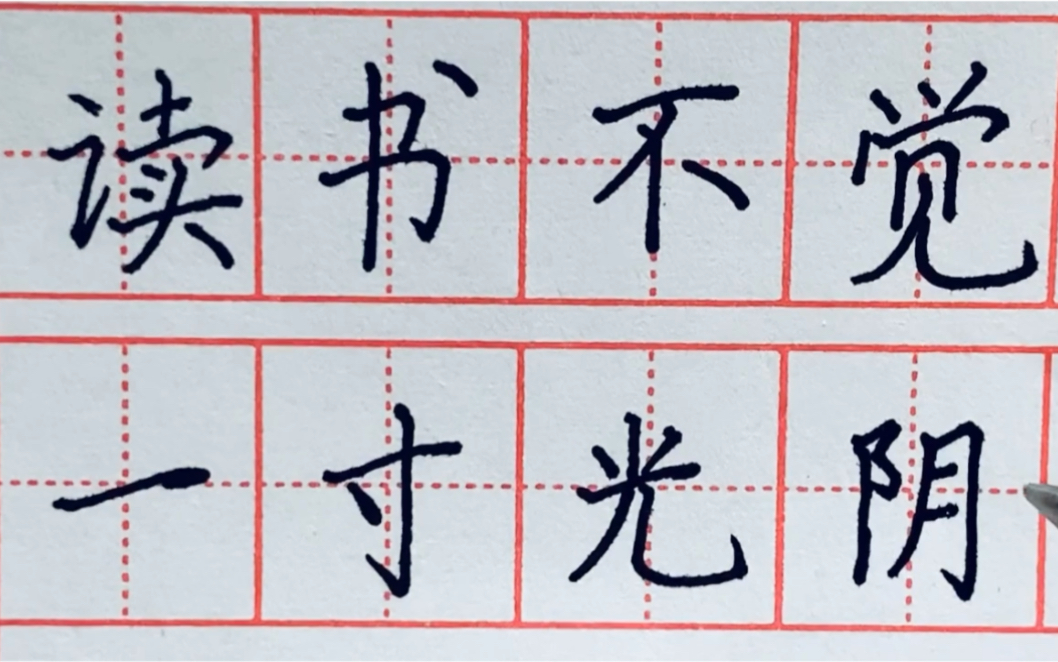 读书不觉
一寸光阴